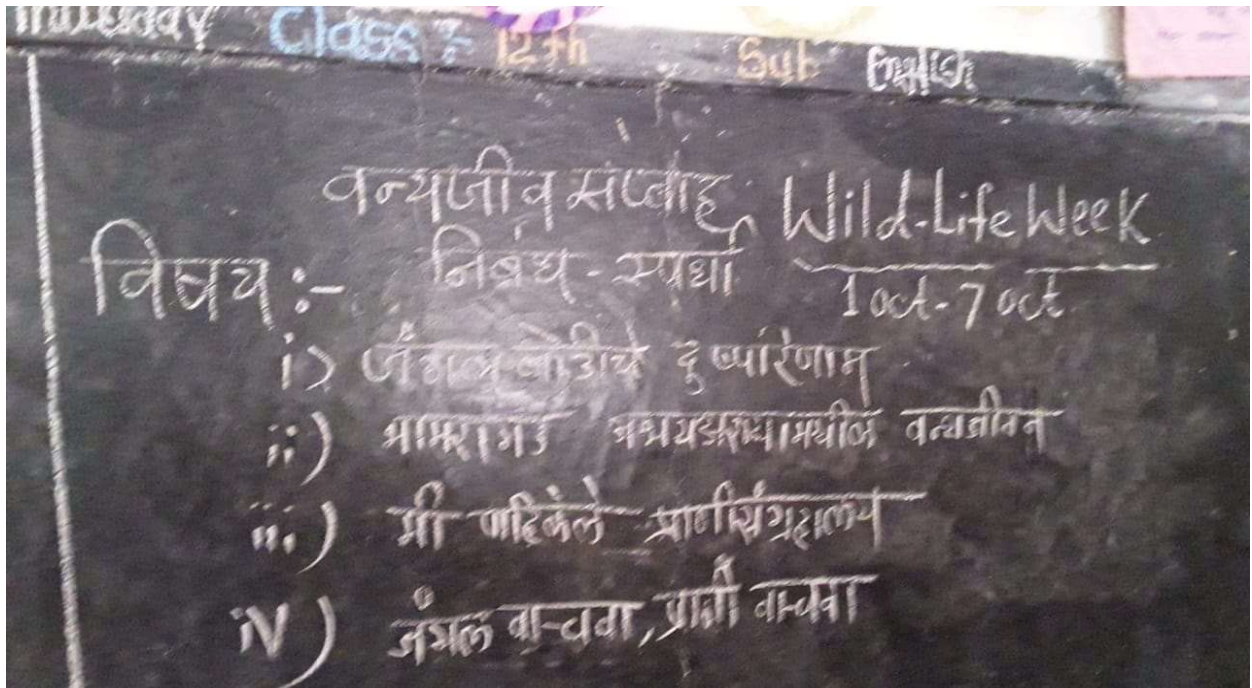 Thursday Class :- 12th Sub English
वन्यजीव सप्ताह Wild-Life Week
विषय :- निबंध - स्पर्धा 1 oct - 7 oct
i) जंगल तोडीचे दुष्परिणाम
ii) भामरागड अभयारण्यामधील वन्यजीवन
iii) मी पाहिलेले प्राणीसंग्रहालय
iv) जंगल वाचवा, प्राणी वाचवा